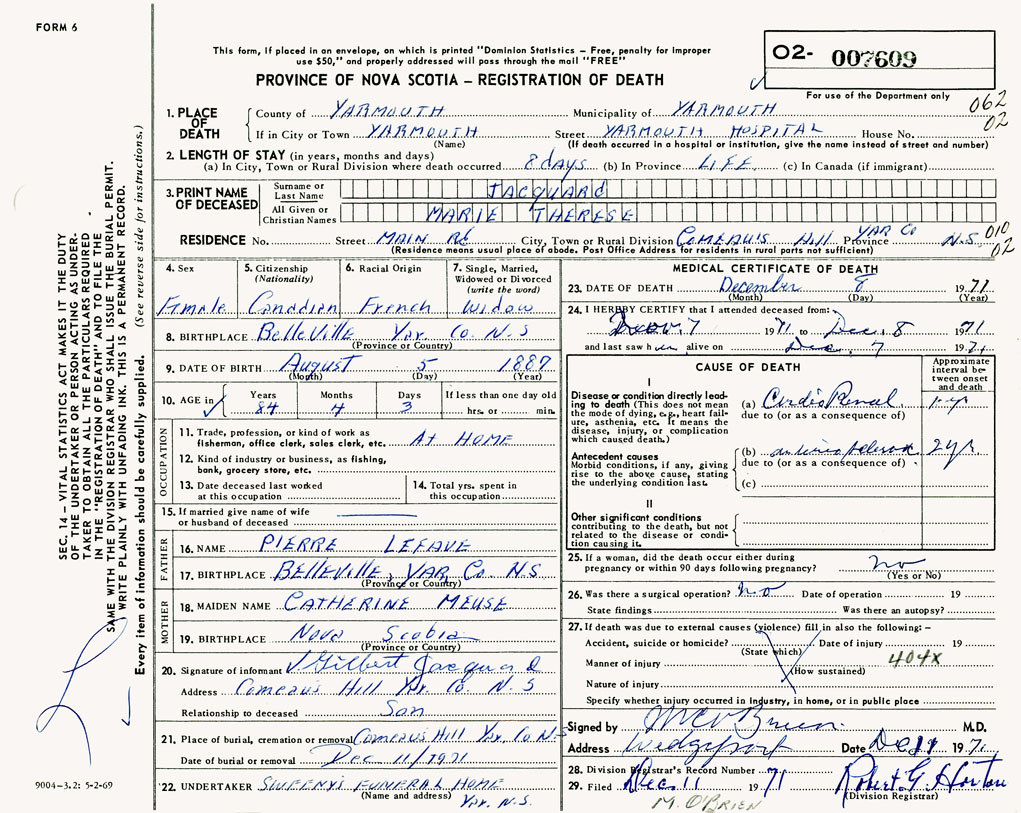 FORM 6
This form, if placed in an envelope, on which is printed "Dominion Statistics – Free, penalty for improper
use $50," and properly addressed will pass through the mail "FREE"
PROVINCE OF NOVA SCOTIA – REGISTRATION OF DEATH
O2- 007609
For use of the Department only
062
02
1. PLACE OF DEATH
County of YARMOUTH Municipality of YARMOUTH
If in City or Town YARMOUTH Street YARMOUTH HOSPITAL House No.
(Name) (If death occurred in a hospital or institution, give the name instead of street and number)
2. LENGTH OF STAY (in years, months and days)
(a) In City, Town or Rural Division where death occurred 8 days (b) In Province LIFE (c) In Canada (if immigrant)
3. PRINT NAME OF DECEASED
Surname or Last Name JACQUARD
All Given or Christian Names MARIE THERESE
RESIDENCE No. Street MAIN Rd City, Town or Rural Division COMEAU'S Hill YAR Co Province N.S.
010
02
(Residence means usual place of abode. Post Office Address for residents in rural parts not sufficient)
4. Sex
Female
5. Citizenship (Nationality)
Canadian
6. Racial Origin
French
7. Single, Married, Widowed or Divorced (write the word)
Widow
8. BIRTHPLACE BelleVille Yar. Co. N.S
(Province or Country)
9. DATE OF BIRTH August 5 1887
(Month) (Day) (Year)
10. AGE in Years Months Days If less than one day old
84 4 3 hrs. or min.
OCCUPATION
11. Trade, profession, or kind of work as
fisherman, office clerk, sales clerk, etc. At HOME
12. Kind of industry or business, as fishing,
bank, grocery store, etc.
13. Date deceased last worked
at this occupation
14. Total yrs. spent in
this occupation
15. If married give name of wife
or husband of deceased
FATHER
16. NAME PIERRE LEFAVE
17. BIRTHPLACE BELLEVILLE, YAR Co. N.S
(Province or Country)
MOTHER
18. MAIDEN NAME CATHERINE MEUSE
19. BIRTHPLACE Nova Scotia
(Province or Country)
20. Signature of informant J. Gilbert Jacquard
Address Comeaus Hill Yar. Co. N.S
Relationship to deceased Son
21. Place of burial, cremation or removal Comeaus Hill Yar. Co N-S
Date of burial or removal Dec 11/1971
22. UNDERTAKER SWEENYS FUNERAL HOME
(Name and address) Yar. N.S.
MEDICAL CERTIFICATE OF DEATH
23. DATE OF DEATH December 8 1971
(Month) (Day) (Year)
24. I HEREBY CERTIFY that I attended deceased from:
7 1971 to Dec. 8 1971
and last saw h alive on Dec. 7 1971
CAUSE OF DEATH
Approximate interval between onset and death
I
Disease or condition directly leading to death (This does not mean the mode of dying, e.g., heart failure, asthenia, etc. It means the disease, injury, or complication which caused death.)
(a) Cardio Renal
due to (or as a consequence of)
Antecedent causes
Morbid conditions, if any, giving rise to the above cause, stating the underlying condition last.
(b) 2 yr
due to (or as a consequence of)
(c)
II
Other significant conditions
contributing to the death, but not related to the disease or condition causing it.
25. If a woman, did the death occur either during
pregnancy or within 90 days following pregnancy? No
(Yes or No)
26. Was there a surgical operation? No Date of operation 19
State findings Was there an autopsy?
27. If death was due to external causes (violence) fill in also the following: –
Accident, suicide or homicide? Date of injury 19
(State which)
Manner of injury 404X
(How sustained)
Nature of injury
Specify whether injury occurred in industry, in home, or in public place
Signed by M.D.
Address Wedgeport Date Dec 11 1971
28. Division Registrar's Record Number 71
29. Filed Dec 11 1971 Robert G. Horton
(Division Registrar)
M. O'BRIEN
SEC. 14 – VITAL STATISTICS ACT MAKES IT THE DUTY
OF THE UNDERTAKER OR PERSON ACTING AS UNDER-
TAKER TO OBTAIN ALL THE PARTICULARS REQUIRED
IN THE "REGISTRATION OF DEATH" AND TO FILE THE
SAME WITH THE DIVISION REGISTRAR WHO SHALL ISSUE THE BURIAL PERMIT.
WRITE PLAINLY WITH UNFADING INK. THIS IS A PERMANENT RECORD.
Every item of information should be carefully supplied. (See reverse side for instructions.)
9004-3.2: 5-2-69